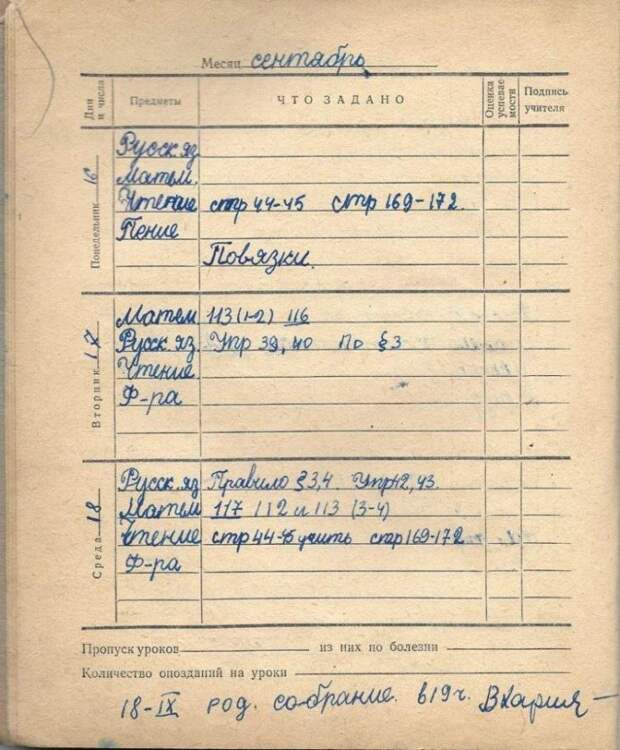 Месяц сентябрь
Дни и числа Предметы ЧТО ЗАДАНО Оценка успевае мости Подпись учителя
Понедельник 16
Русск. яз
Матем.
Чтение стр 44-45 стр 169-172.
Пение
Повязки.
Вторник 17
Матем 113 (1-2) 116
Русск. яз. Упр 39, 40 по § 3
Чтение.
Ф-ра
Среда 18
Русск. яз Правило § 3,4. Упр 42, 43.
Матем 117 112 и 113 (3-4)
Чтение стр 44-45 учить стр 169-172
Ф-ра
Пропуск уроков из них по болезни
Количество опозданий на уроки
18-IX род. собрание. в 19 ч.